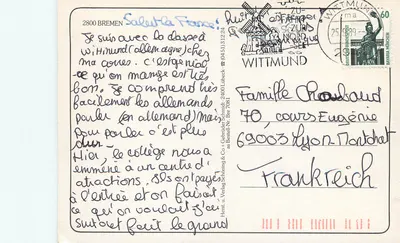 2800 BREMEN
Salut la France!
Je suis avec la classe d
Wittmund (allemagne) chez
ma corres. C'est génial
ce qu'on mange est très
bon. Je comprend très
facilement les allemands
parler (en allemand) mais
pour parler c'est plus
dur.
Hier, le collège nous a
emmené à un centre d'
attractions. Ils ont payés
à l'entrée et on faisait
ce qu'on voulait j'ai
surtout fait le grand
huit
WITTMUND
WITTMUND
60
Famille Chabaud
70, cours Eugénie
69003 Lyon Montchat
Frankreich